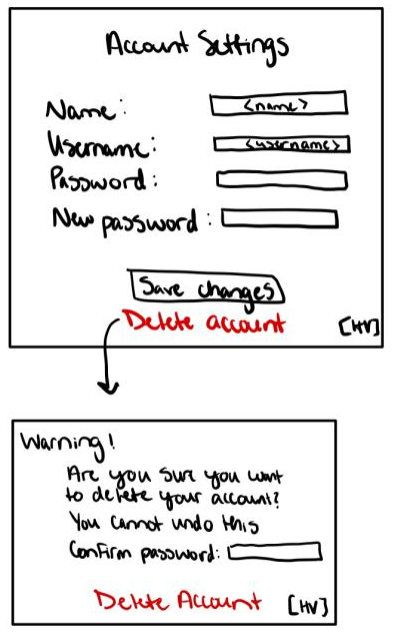 Account Settings
Name: <name>
Username: <username>
Password:
New password:
Save changes
Delete account
[HV]
Warning!
Are you sure you want
to delete your account?
You cannot undo this
Confirm password:
Delete Account [HV]